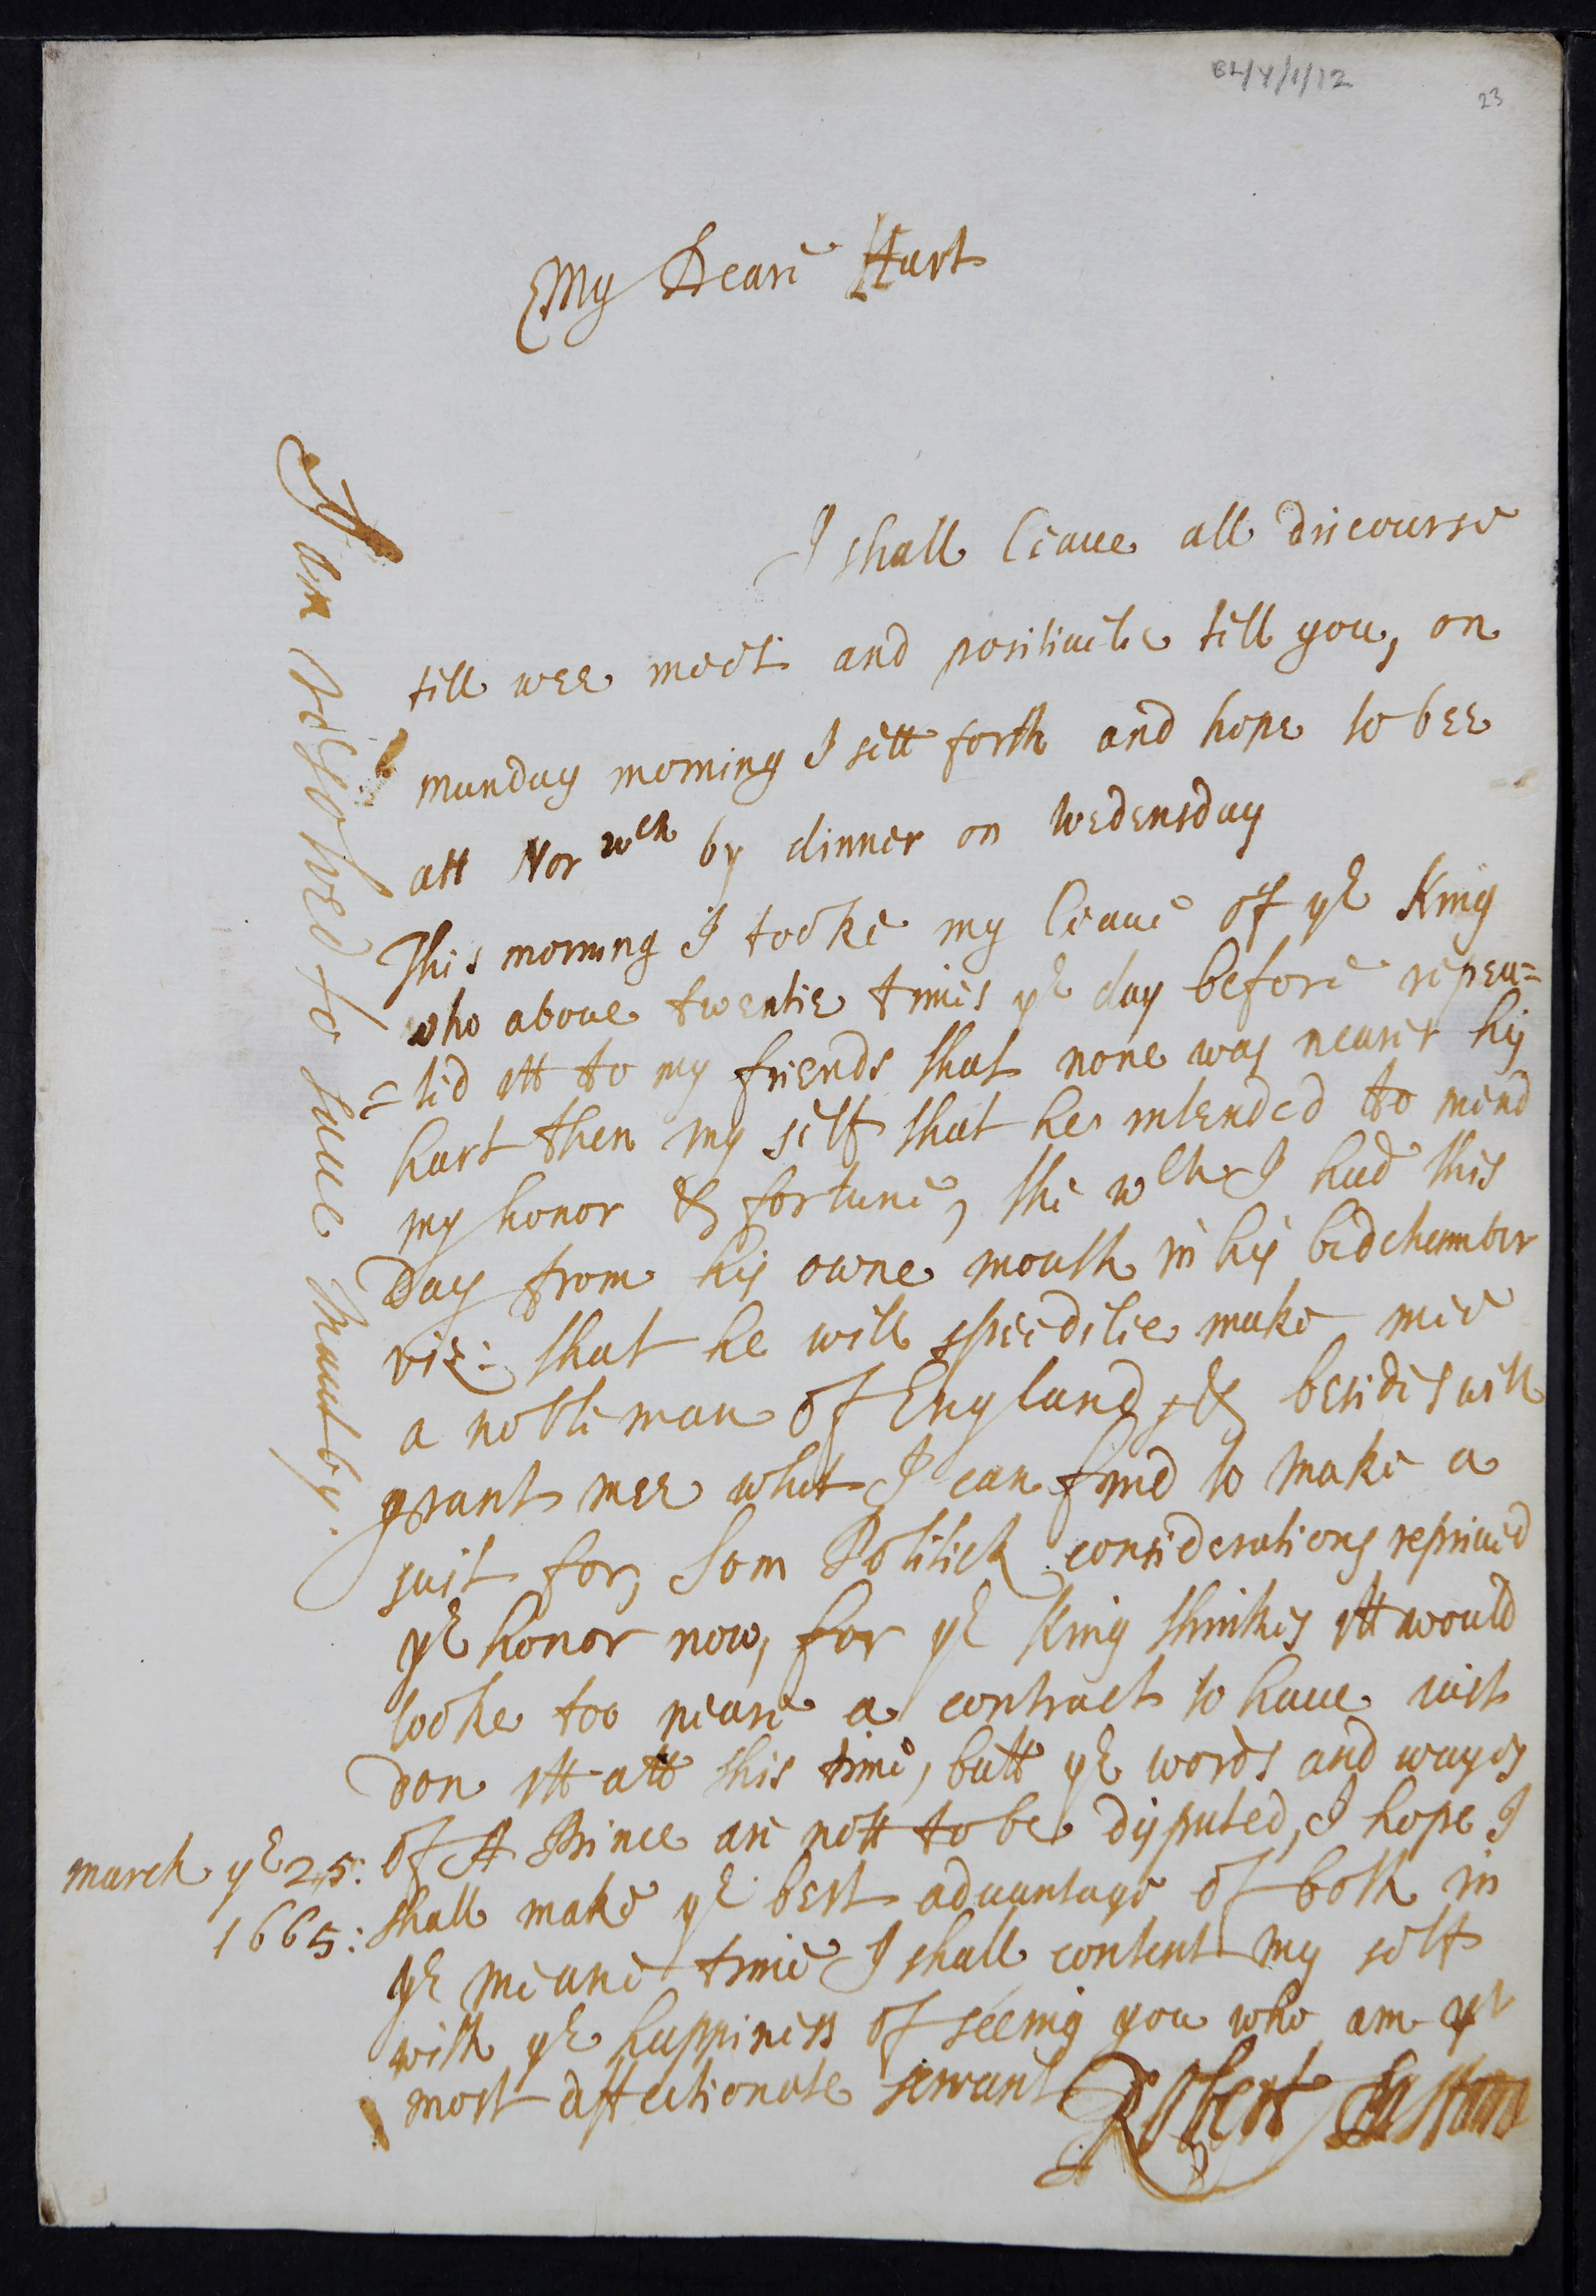 BL/Y/1/12
23
My Deare Hart
I shall leaue all discourse
till wee meet and positiuelie tell you, on
munday morning I sett forth and hope to bee
att Norwch by dinner on Wedensday
This morning I tooke my leaue of ye King
who aboue twentie times ye day before repea=
=ted itt to my friends that none was nearer his
hart then my self that he intended to mind
my honor & fortune, the wch I had this
Day from his owne mouth in his bedchamber
viz: that he will speedilie make mee
a nobleman of England, & besides will
grant mee what I can find to make a
suit for, som Politick considerations repriued
ye honor now, for ye King thinkes itt would
looke too neare a contract to haue iust
don itt att this time, butt ye words and wayes
of A Prince are nott to be disputed, I hope I
shall make ye best aduantage of both in
ye meane time I shall content my self
with ye happiness of seeing you who am yr
most affectionate seruant Robert Paston
march ye 25:
1665:
I am resolved to saue Mautby.